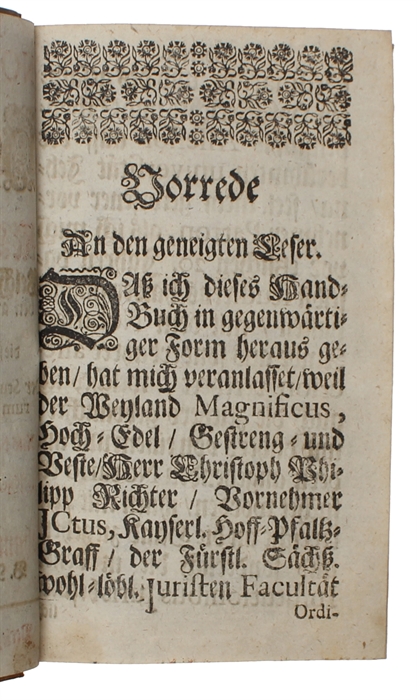 Vorrede
An den geneigten Leser.
DAß ich dieses Hand-
Buch in gegenwärti-
ger Form heraus ge-
ben / hat mich veranlasset / weil
der Weyland Magnificus,
Hoch-Edel / Gestreng- und
Veste / Herr Christoph Phi-
lipp Richter / Vornehmer
JCtus, Kayserl. Hoff-Pfaltz-
Graff / der Fürstl. Sächß.
wohl-löbl. Juristen Facultät
Ordi-